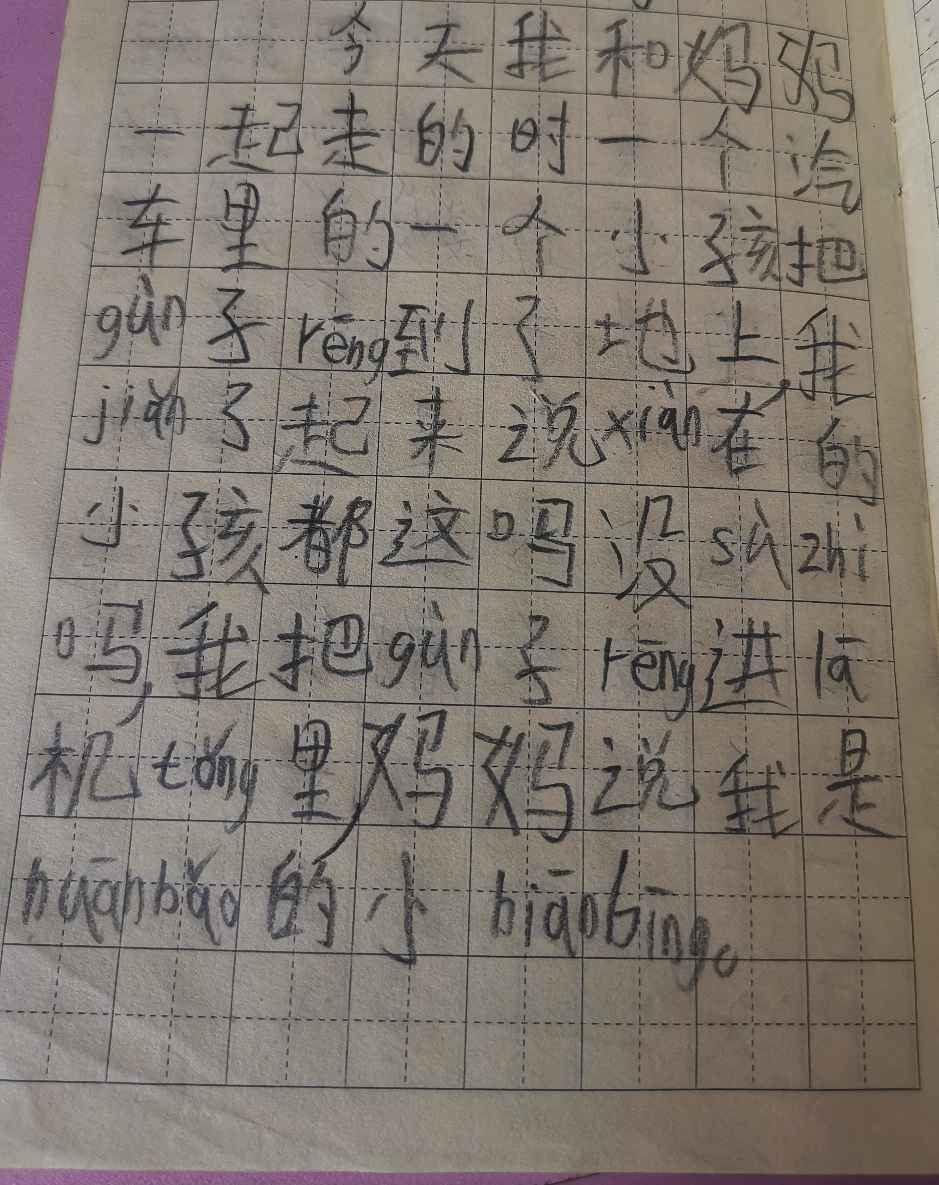 今天我和妈妈
一起走的时一个汽
车里的一个小孩把
gùn子rēng到了地上,我
jiǎn了起来说xiàn在的
小孩都这吗没sù zhì
吗,我把gùn子rēng进lā
机tǒng里,妈妈说我是
huānbǎo的小biāobīng。